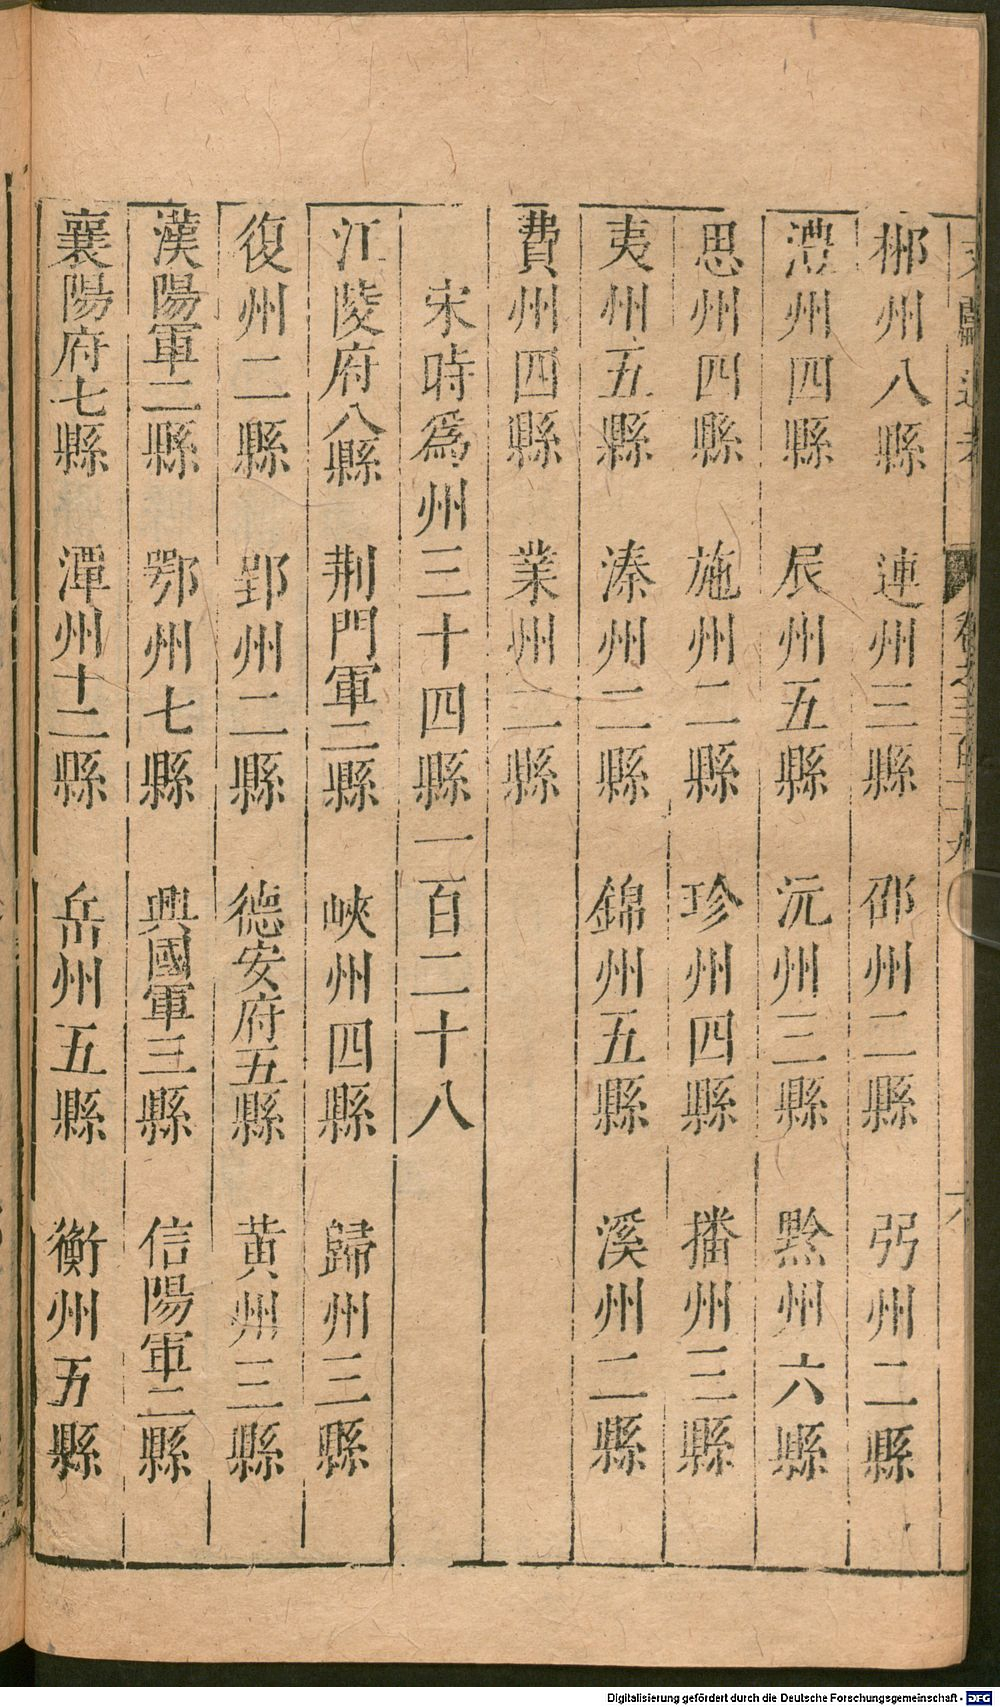 郴州八縣 連州三縣 邵州二縣 弜州二縣
澧州四縣 辰州五縣 沅州三縣 黔州六縣
思州四縣 施州二縣 珍州四縣 播州三縣
夷州五縣 溱州二縣 錦州五縣 溪州二縣
費州四縣 業州二縣
宋時爲州三十四縣一百二十八
江陵府八縣 荆門軍二縣 峽州四縣 歸州三縣
復州二縣 郢州二縣 德安府五縣 黃州三縣
漢陽軍二縣 鄂州七縣 興國軍三縣 信陽軍二縣
襄陽府七縣 潭州十二縣 岳州五縣 衡州五縣
Digitalisierung gefördert durch die Deutsche Forschungsgemeinschaft - DFG